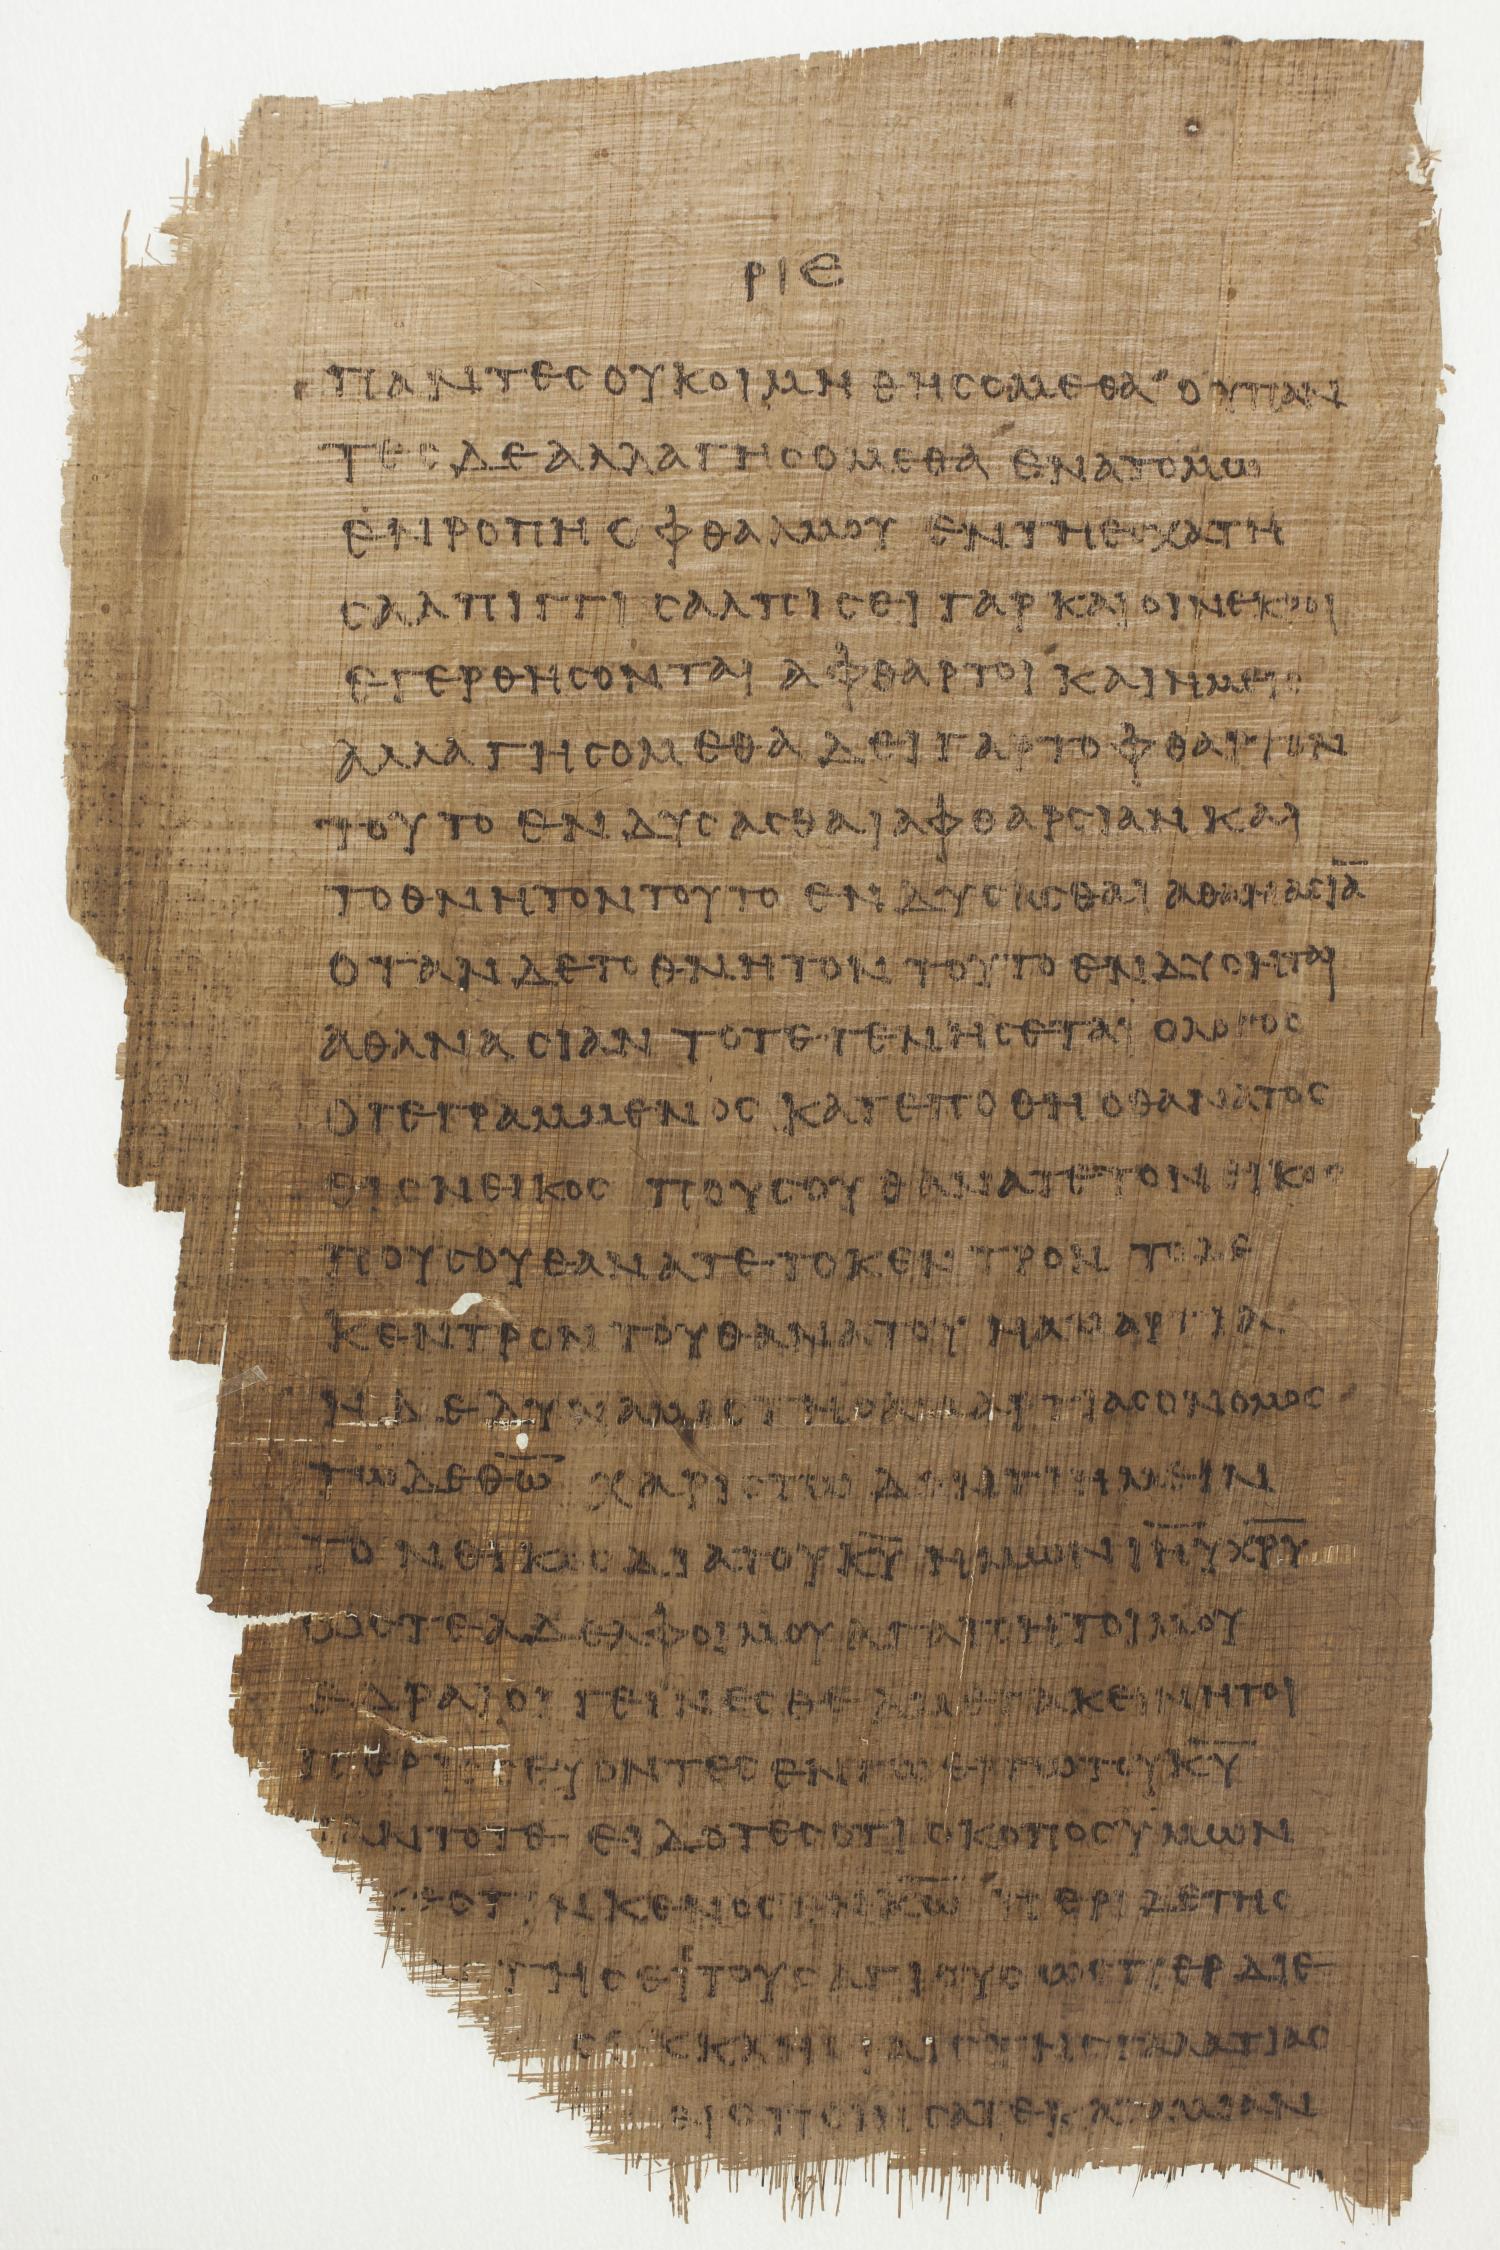 ΡΙΕ
ΠΑΝΤΕΣ ΟΥ ΚΟΙΜΗΘΗΣΟΜΕΘΑ ΟΥ ΠΑΝ
ΤΕΣ ΔΕ ΑΛΛΑΓΗΣΟΜΕΘΑ ΕΝ ΑΤΟΜΩ
ΕΝ ΡΟΠΗ ΟΦΘΑΛΜΟΥ ΕΝ ΤΗ ΕΣΧΑΤΗ
ΣΑΛΠΙΓΓΙ ΣΑΛΠΙΣΕΙ ΓΑΡ ΚΑΙ ΟΙ ΝΕΚΡΟΙ
ΕΓΕΡΘΗΣΟΝΤΑΙ ΑΦΘΑΡΤΟΙ ΚΑΙ ΗΜΕΙΣ
ΑΛΛΑΓΗΣΟΜΕΘΑ ΔΕΙ ΓΑΡ ΤΟ ΦΘΑΡΤΟΝ
ΤΟΥΤΟ ΕΝΔΥΣΑΣΘΑΙ ΑΦΘΑΡΣΙΑΝ ΚΑΙ
ΤΟ ΘΝΗΤΟΝ ΤΟΥΤΟ ΕΝΔΥΣΑΣΘΑΙ ΑΘΑΝΑΣΙΑ̅
ΟΤΑΝ ΔΕ ΤΟ ΘΝΗΤΟΝ ΤΟΥΤΟ ΕΝΔΥΣΗΤΑΙ
ΑΘΑΝΑΣΙΑΝ ΤΟΤΕ ΓΕΝΗΣΕΤΑΙ Ο ΛΟΓΟΣ
Ο ΓΕΓΡΑΜΜΕΝΟΣ ΚΑΤΕΠΟΘΗ Ο ΘΑΝΑΤΟΣ
ΕΙΣ ΝΕΙΚΟΣ ΠΟΥ ΣΟΥ ΘΑΝΑΤΕ ΤΟ ΝΙΚΟΣ
ΠΟΥ ΣΟΥ ΘΑΝΑΤΕ ΤΟ ΚΕΝΤΡΟΝ ΤΟ ΔΕ
ΚΕΝΤΡΟΝ ΤΟΥ ΘΑΝΑΤΟΥ Η ΑΜΑΡΤΙΑ
Η ΔΕ ΔΥΝΑΜΙΣ ΤΗΣ ΑΜΑΡΤΙΑΣ Ο ΝΟΜΟΣ
ΤΩ ΔΕ Θ̅Ω̅ ΧΑΡΙΣ ΤΩ ΔΟΝΤΙ ΗΜΕΙΝ
ΤΟ ΝΕΙΚΟΣ ΔΙΑ ΤΟΥ Κ̅Υ̅ ΗΜΩΝ Ι̅Η̅Υ̅ Χ̅Ρ̅Υ̅
ΩΣΤΕ ΑΔΕΛΦΟΙ ΜΟΥ ΑΓΑΠΗΤΟΙ ΜΟΥ
ΕΔΡΑΙΟΙ ΓΕΙΝΕΣΘΕ ΑΜΕΤΑΚΕΙΝΗΤΟΙ
ΠΕΡΙΣΣΕΥΟΝΤΕΣ ΕΝ ΤΩ ΕΡΓΩ ΤΟΥ Κ̅Υ̅
ΠΑΝΤΟΤΕ ΕΙΔΟΤΕΣ ΟΤΙ Ο ΚΟΠΟΣ ΥΜΩΝ
ΟΥΚ ΕΣΤΙΝ ΚΕΝΟΣ ΕΝ Κ̅Ω̅ ΠΕΡΙ ΔΕ ΤΗΣ
ΤΗΣ ΕΙΣ ΤΟΥΣ ΑΓΙΟΥΣ ΩΣΠΕΡ ΔΙΕ
ΕΚΚΛΗΣΙΑΙΣ ΤΗΣ ΓΑΛΑΤΙΑΣ
ΠΟΙΗΣΑΤΕ ΚΑΤΑ ΜΙΑΝ